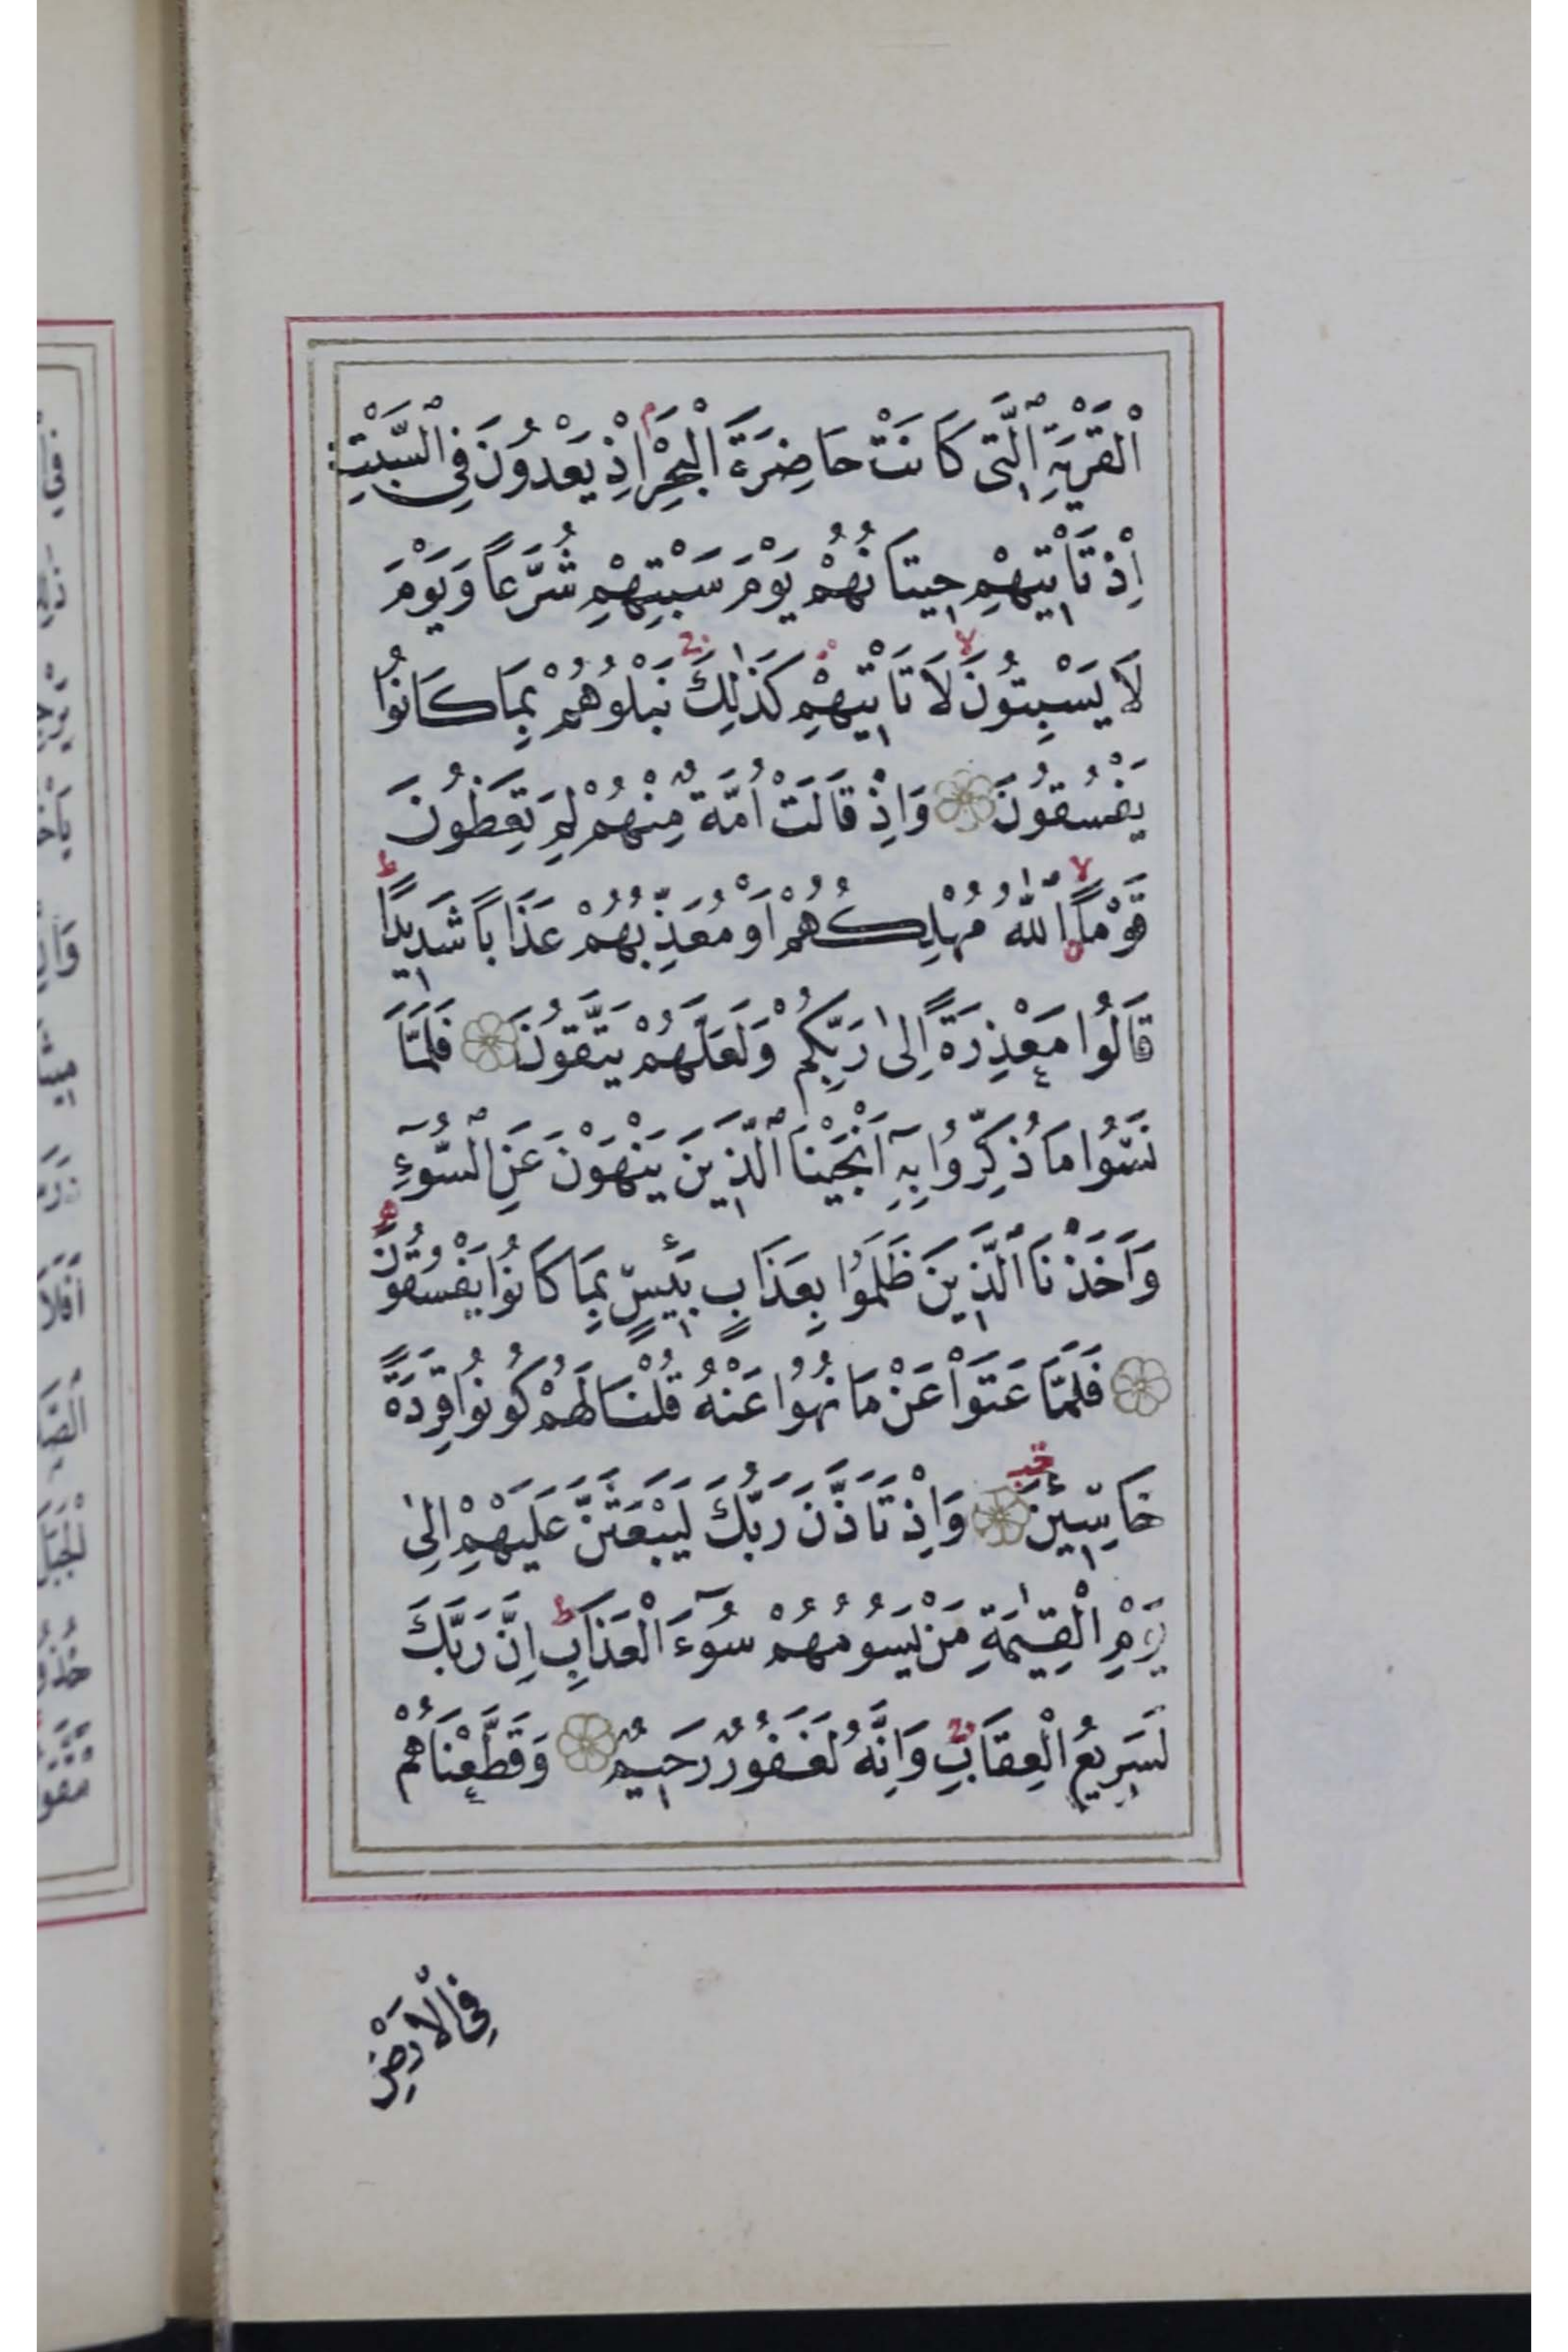 الْقَرْيَةِ الَّتٖى كَانَتْ حَاضِرَةَ الْبَحْرِ اِذْ يَعْدُونَ فِى السَّبْتِ
اِذْ تَاْتٖيهِمْ حٖيتَانُهُمْ يَوْمَ سَبْتِهِمْ شُرَّعًا وَيَوْمَ
لَا يَسْبِتُونَ لَا تَاْتٖيهِمْ كَذٰلِكَ نَبْلُوهُمْ بِمَا كَانُوا
يَفْسُقُونَ وَاِذْ قَالَتْ اُمَّةٌ مِنْهُمْ لِمَ تَعِظُونَ
قَوْمًا اللّٰهُ مُهْلِكُهُمْ اَوْ مُعَذِّبُهُمْ عَذَابًا شَدٖيدًا
قَالُوا مَعْذِرَةً اِلٰى رَبِّكُمْ وَلَعَلَّهُمْ يَتَّقُونَ فَلَمَّا
نَسُوا مَا ذُكِّرُوا بِهٖٓ اَنْجَيْنَا الَّذٖينَ يَنْهَوْنَ عَنِ السُّوٓءِ
وَاَخَذْنَا الَّذٖينَ ظَلَمُوا بِعَذَابٍ بَئٖيسٍ بِمَا كَانُوا يَفْسُقُونَ
فَلَمَّا عَتَوْا عَنْ مَا نُهُوا عَنْهُ قُلْنَا لَهُمْ كُونُوا قِرَدَةً
خَاسِئٖينَ وَاِذْ تَاَذَّنَ رَبُّكَ لَيَبْعَثَنَّ عَلَيْهِمْ اِلٰى
يَوْمِ الْقِيٰمَةِ مَنْ يَسُومُهُمْ سُوٓءَ الْعَذَابِ اِنَّ رَبَّكَ
لَسَرٖيعُ الْعِقَابِ وَاِنَّهُ لَغَفُورٌ رَحٖيمٌ وَقَطَّعْنَاهُمْ
فِى الْاَرْضِ